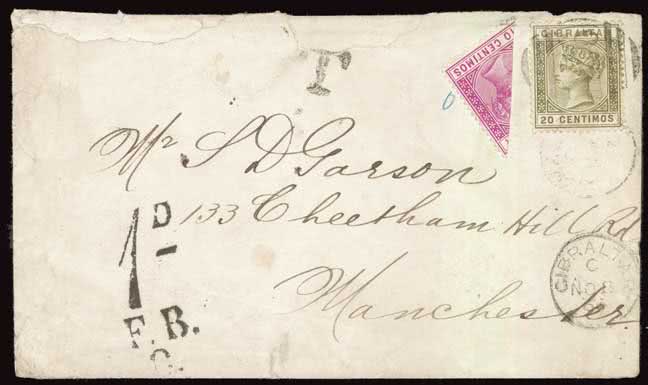 T
TO CENTIMOS
0
GIBRALTAR
20 CENTIMOS
Mr S D Garson
133 Cheetham Hill Rd
Manchester
1 D
F.B.
C.
GIBRALTAR
C
NO 8